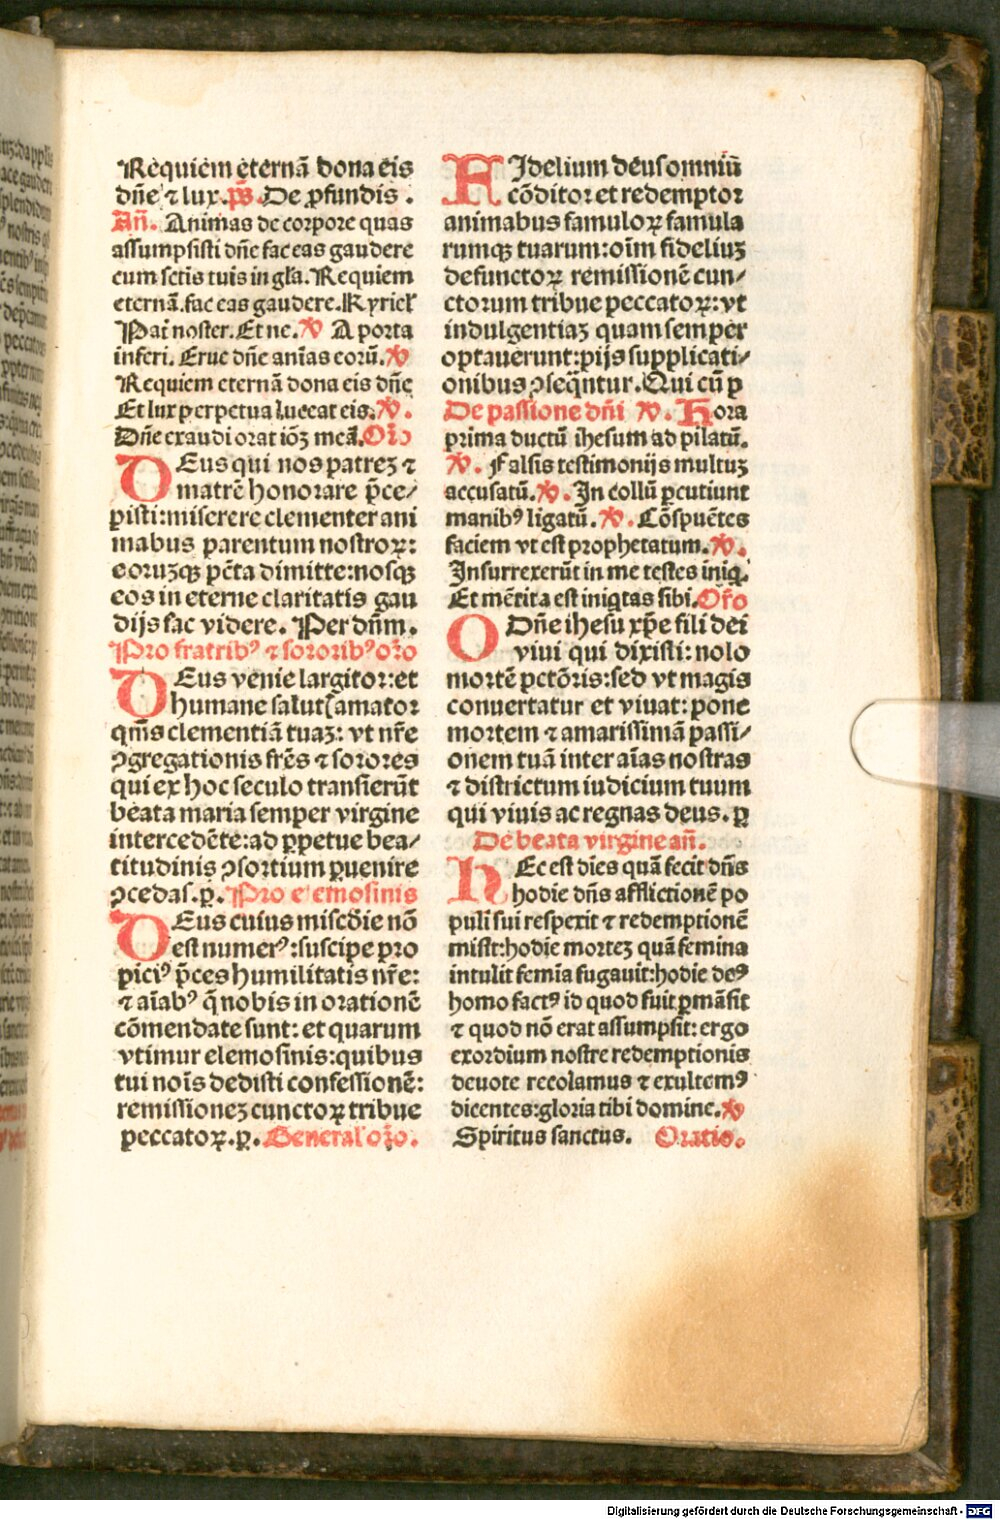 Requiem eternā dona eis
dn̄e ⁊ lux. ps̄. De ꝓfundis.
An̄. Animas de corpore quas
assumpsisti dn̄e fac eas gaudere
cum sctis tuis in gl̄a. Requiem
eternā. fac eas gaudere. Kyriel̄
Pat̄ noster. Et ne. ℣ A porta
inferi. Erue dn̄e anīas eorū. ℣
Requiem eternā dona eis dn̄e
Et lux perpetua luceat eis. ℣.
Dn̄e exaudi orationē meā. Or̄o
DEus qui nos patreꝫ ⁊
matrē honorare p̄ce/
pisti: miserere clementer ani
mabus parentum nostroꝝ:
eoruꝫqꝫ pc̄ta dimitte: nosqꝫ
eos in eterne claritatis gau
dijs fac videre. Per dn̄m.
Pro fratribꝰ ⁊ sororibꝰ or̄o
DEus venie largitor: et
humane salutꝭ amator
qm̄s clementiā tuaꝫ: vt nr̄e
ꝯgregationis frēs ⁊ sorores
qui ex hoc seculo transierūt
beata maria semper virgine
intercedēte: ad ꝑpetue bea/
titudinis ꝯsortium ꝑuenire
ꝯcedas. ꝑ. Pro elemosinis
DEus cuius misc̄die nō
est numerꝰ: suscipe pro
piciꝰ p̄ces humilitatis nr̄e:
⁊ aīabꝰ q̄ nobis in orationē
cōmendate sunt: et quarum
vtimur elemosinis: quibus
tui noīs dedisti confessionē:
remissioneꝫ cunctoꝝ tribue
peccatoꝝ. ꝑ. General̄ or̄o.
FIdelium deus omniū
cōditor et redemptor
animabus famuloꝝ famula
rumqꝫ tuarum: oīm fideliuꝫ
defunctoꝝ remissionē cun/
ctorum tribue peccatoꝝ: vt
indulgentiaꝫ quam semper
optauerunt: pijs supplicati/
onibus ꝯseq̄ntur. Qui cū p
De passione dn̄i ℣. Hora
prima ductū ihesum ad pilatū.
℣. Falsis testimonijs multuꝫ
accusatū. ℣. In collū ꝑcutiunt
manibꝰ ligatū. ℣. Cōspuētes
faciem vt est prophetatum. ℣.
Insurrexerūt in me testes iniq̄.
Et mētita est iniq̄tas sibi. Or̄o
O Dn̄e ihesu xp̄e fili dei
viui qui dixisti: nolo
mortē pctōris: sed vt magis
conuertatur et viuat: pone
mortem ⁊ amarissimā passi/
onem tuā inter aīas nostras
⁊ districtum iudicium tuum
qui viuis ac regnas deus. ꝑ
De beata virgine an̄.
HEc est dies quā fecit dn̄s
hodie dn̄s afflictionē po
puli sui respexit ⁊ redemptionē
misit: hodie morteꝫ quā femina
intulit femīa fugauit: hodie deꝰ
homo factꝰ id quod fuit ꝑmāsit
⁊ quod nō erat assumpsit: ergo
exordium nostre redemptionis
deuote recolamus ⁊ exultemꝰ
dicentes: gloria tibi domine. ℣
Spiritus sanctus. Oratio.
Digitalisierung gefördert durch die Deutsche Forschungsgemeinschaft - DFG